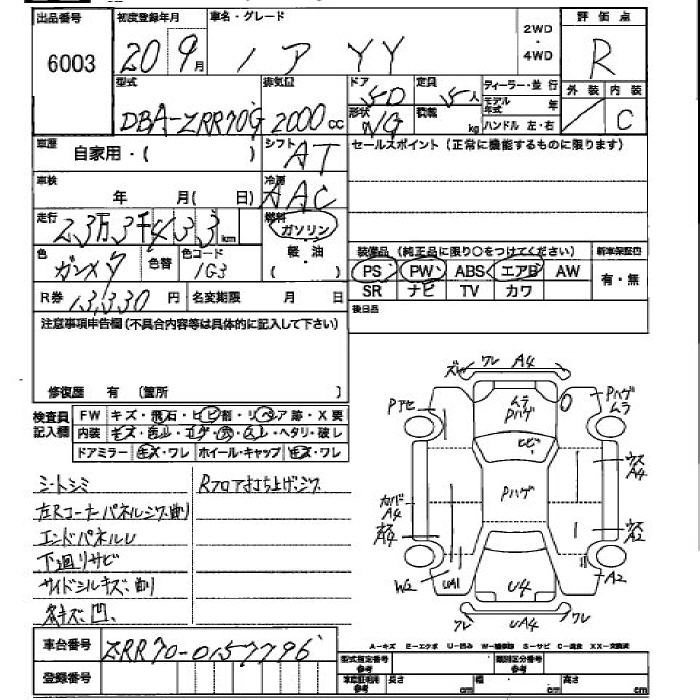 出品番号 初度登録年月 車名・グレード 評価点
6003 20 9月 ノア YY 2WD・4WD R
型式 排気量 ドア 定員 ディーラー・並行 外装 内装
5D 5人 モデル年式 年
DBA-ZRR70G 2000cc 形状 NG 積載 kg ハンドル 左・右 C
車歴 自家用・( ) シフト AT セールスポイント(正常に機能するものに限ります)
車検 年 月( 日) 冷房 AAC
走行 2.3万3千433km 燃料 ガソリン
色 ガンメタ 色替 色コード 1G3 軽・油 ( ) 装備品(純正品に限り○をつけてください) 新車保証書
PS PW ABS エアB AW 有・無
R券 13,330円 名変期限 月 日 SR ナビ TV カワ
注意事項申告欄(不具合内容等は具体的に記入して下さい) 後日品
修復歴 有 (箇所 )
検査員記入欄 FW キズ・飛石・ヒビ割・リペア跡・X要
内装 ヘタリ・破レ
ドアミラー キズ・ワレ ホイール・キャップ キズ・ワレ
シートシミ Rフロア打ち上げジワ
左Rコーナーパネルジワ、削リ
エンドパネルU
下廻リサビ
サイドシルキズ、削リ
多キズ、凹、
ズレ ワレ A4
Pアセ ムラ Pハゲ Pハゲ ムラ
ヒビ
Pハゲ ウス A4
カバー A4
ウス A4 ウス A2
W2 UA1 U4 A2
ワレ UA4 ワレ
A-キズ E-エクボ U-凹み W-補修跡 S-サビ C-腐食 XX-交換済
車台番号 ZRR70-0157796
型式指定番号 参考 類別区分番号 参考
登録番号 車庫証明利用 参考 長さ cm 幅 cm 高さ cm